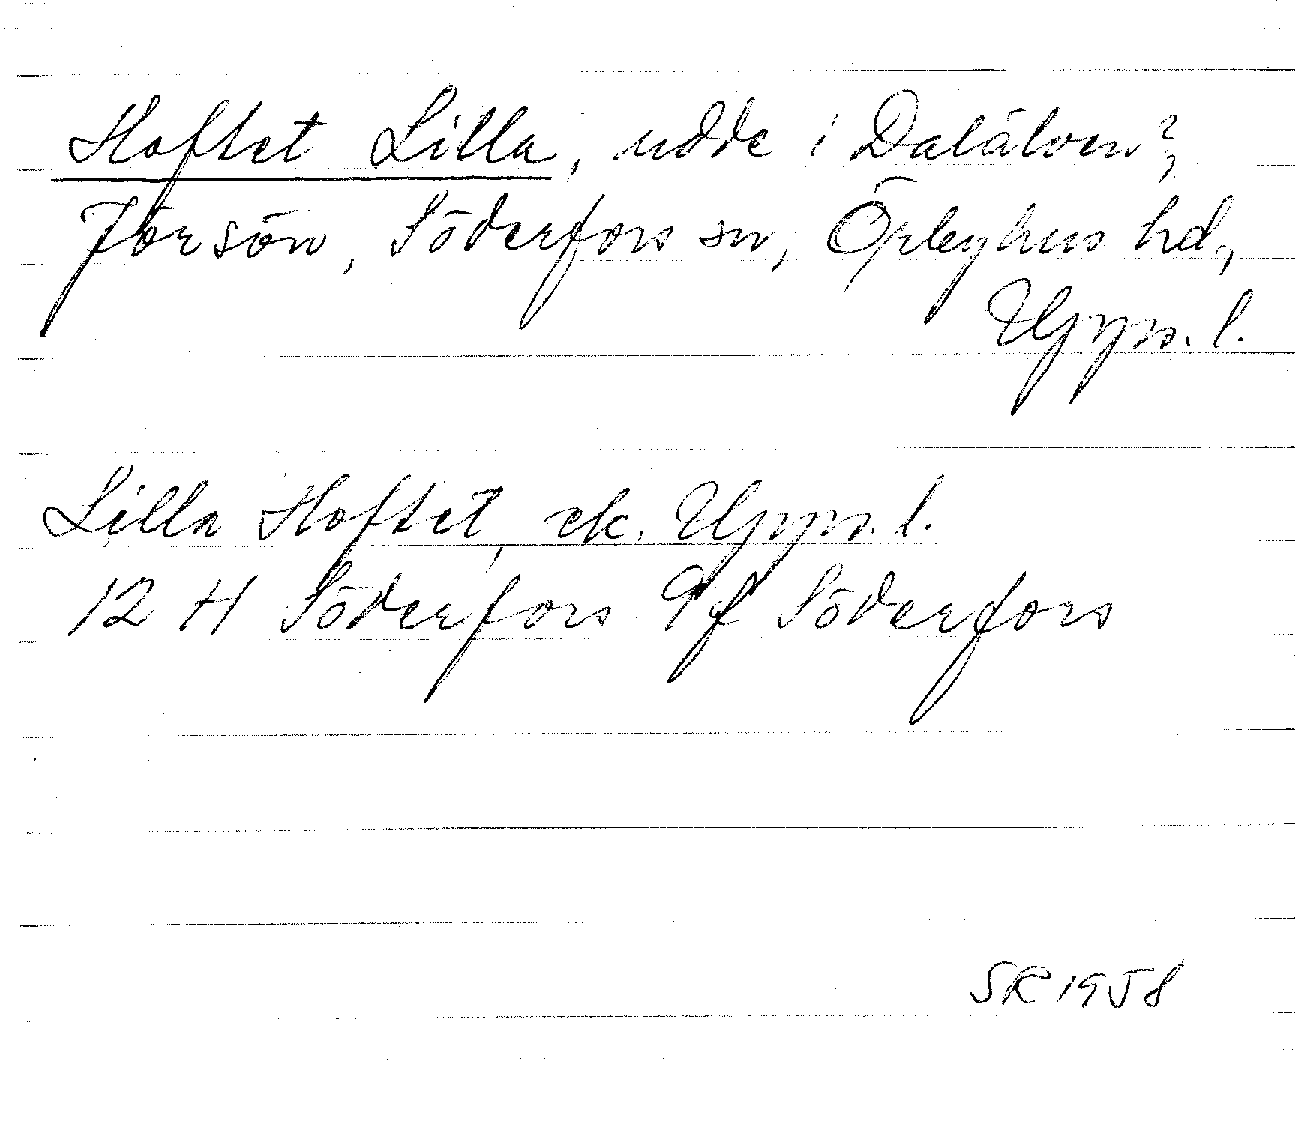 Haftet Lilla, udde i Dalälven?,
Jörsön, Söderfors sn, Örbyhus hd,
Upps. l.
Lilla Haftet, ek. Upps. l.
12 H Söderfors 9f Söderfors
SR 1958